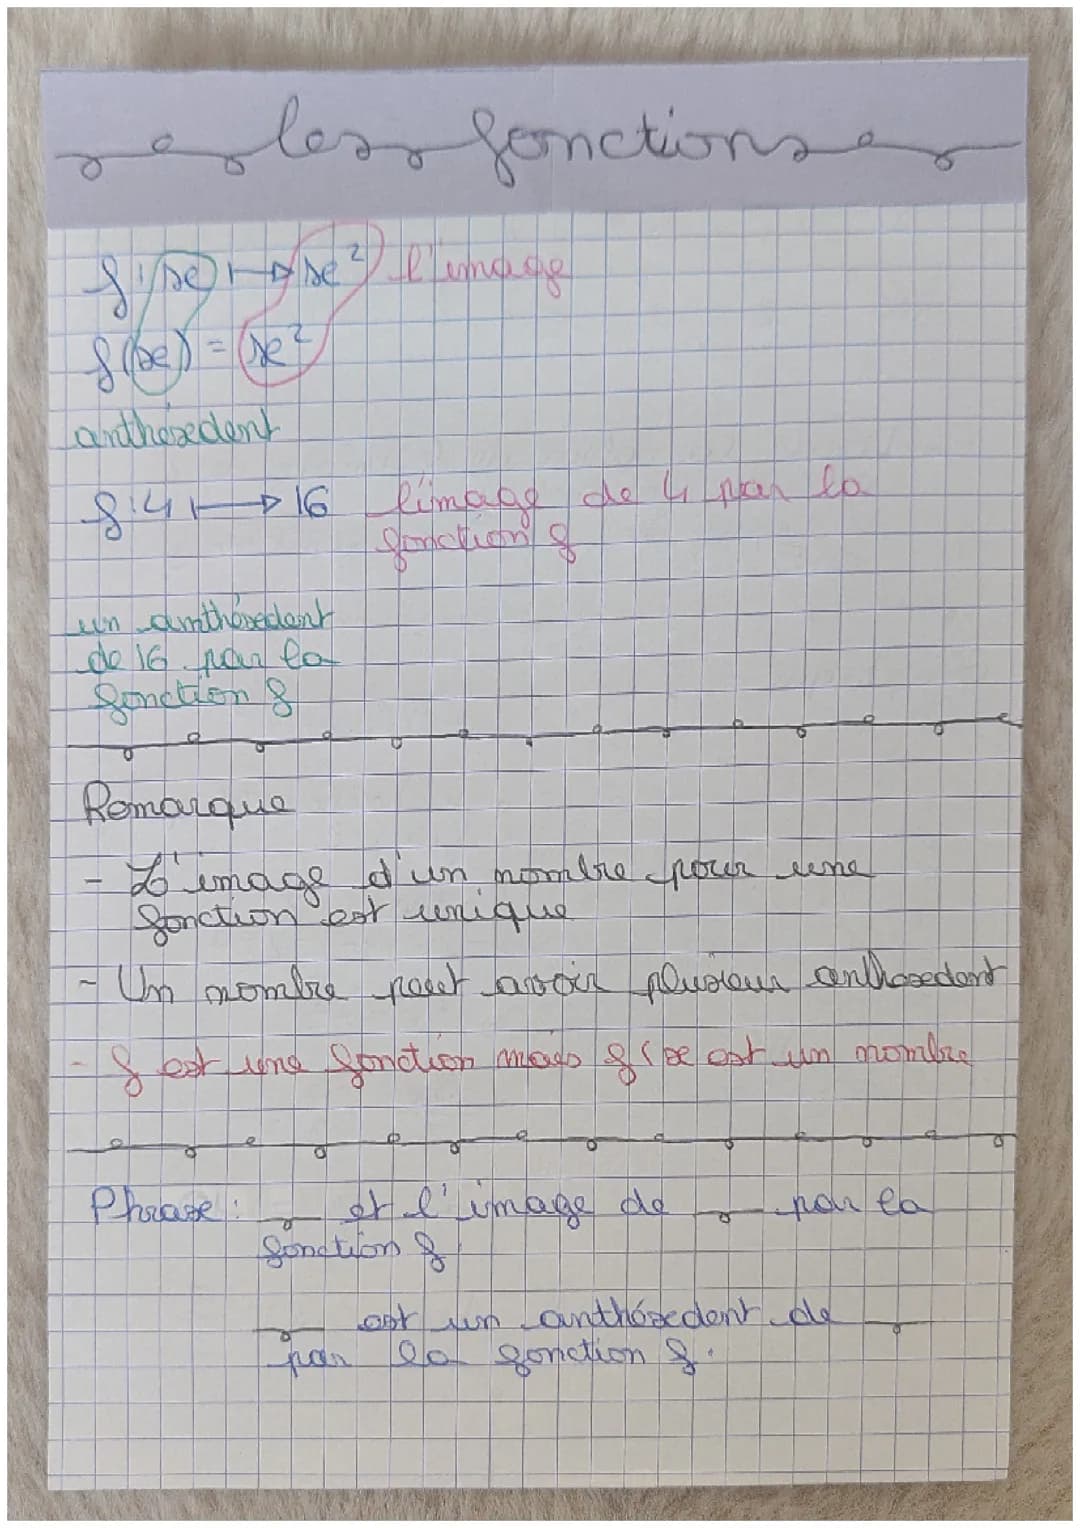 les fonctions
f : x ↦ x² l'image
f(x) = x²
anthésedent
f : 4 ↦ 16 l'image de 4 par la
fonction f
un anthésedent
de 16 par la
fonction f
Remarque
- L'image d'un nombre pour une
fonction est unique
- Un nombre peut avoir plusieur anthesedent
- f est une fonction mais f(x est un nombre
Phrase : __ et l'image de __ par la
fonction f
__ est un anthésedent de __
par la fonction f.